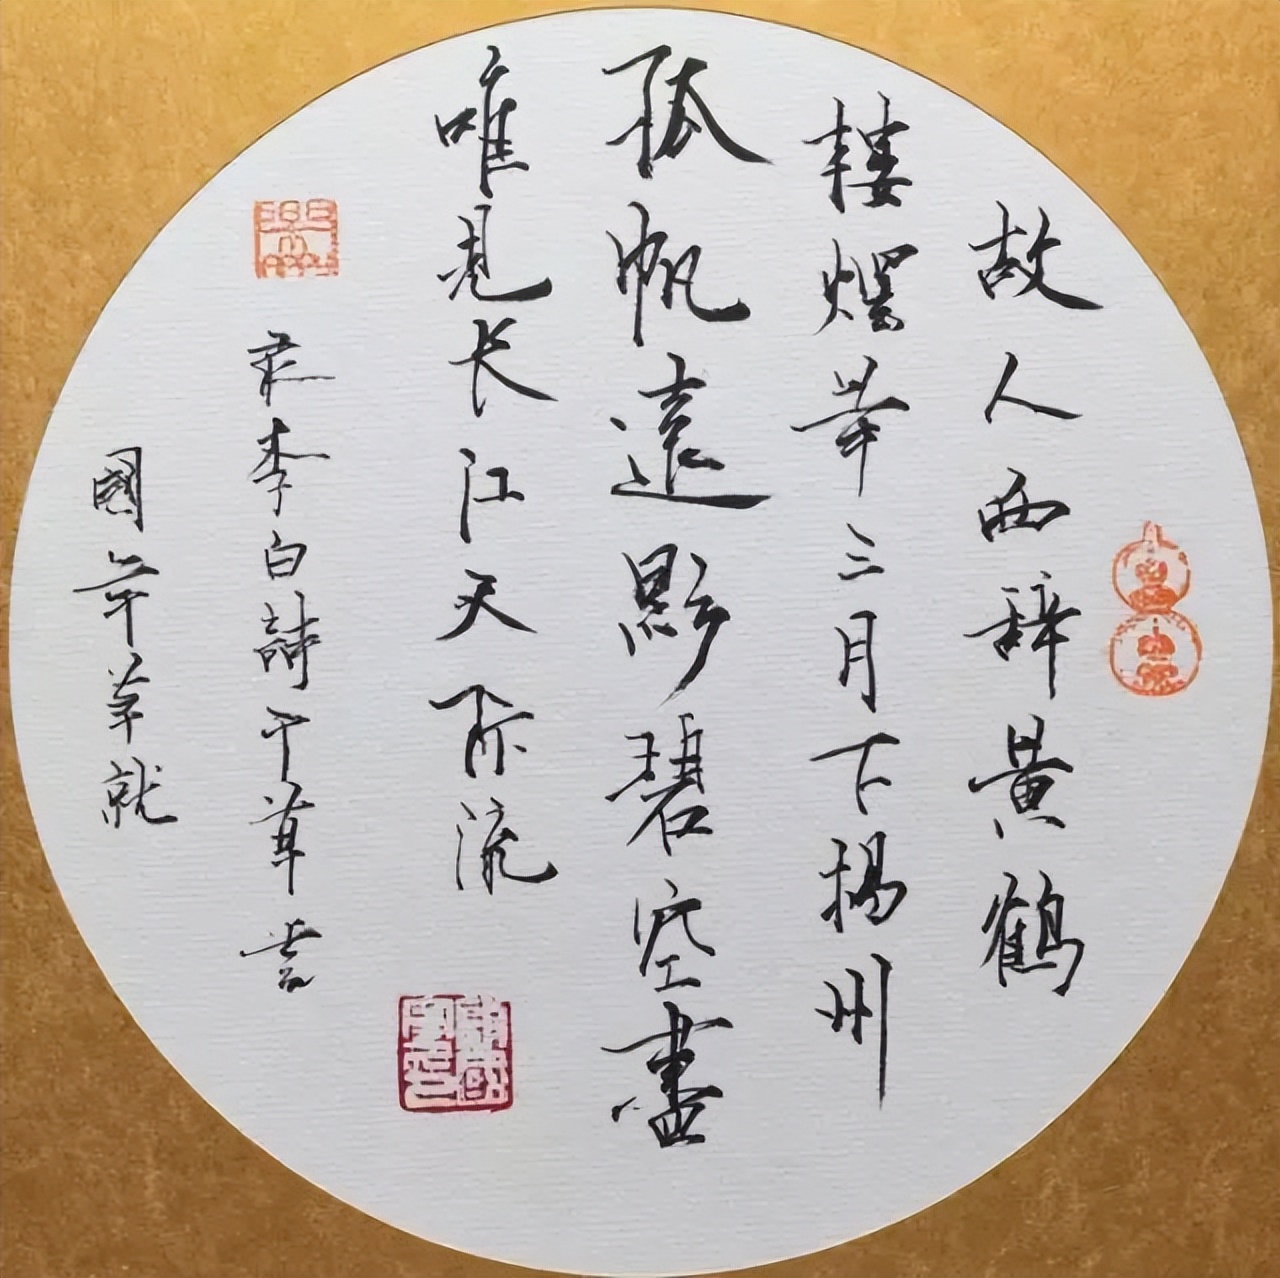 故人西辞黄鹤
楼煙華三月下揚州
孤帆遠影碧空盡
唯見长江天际流
录李白詩于草
國草就